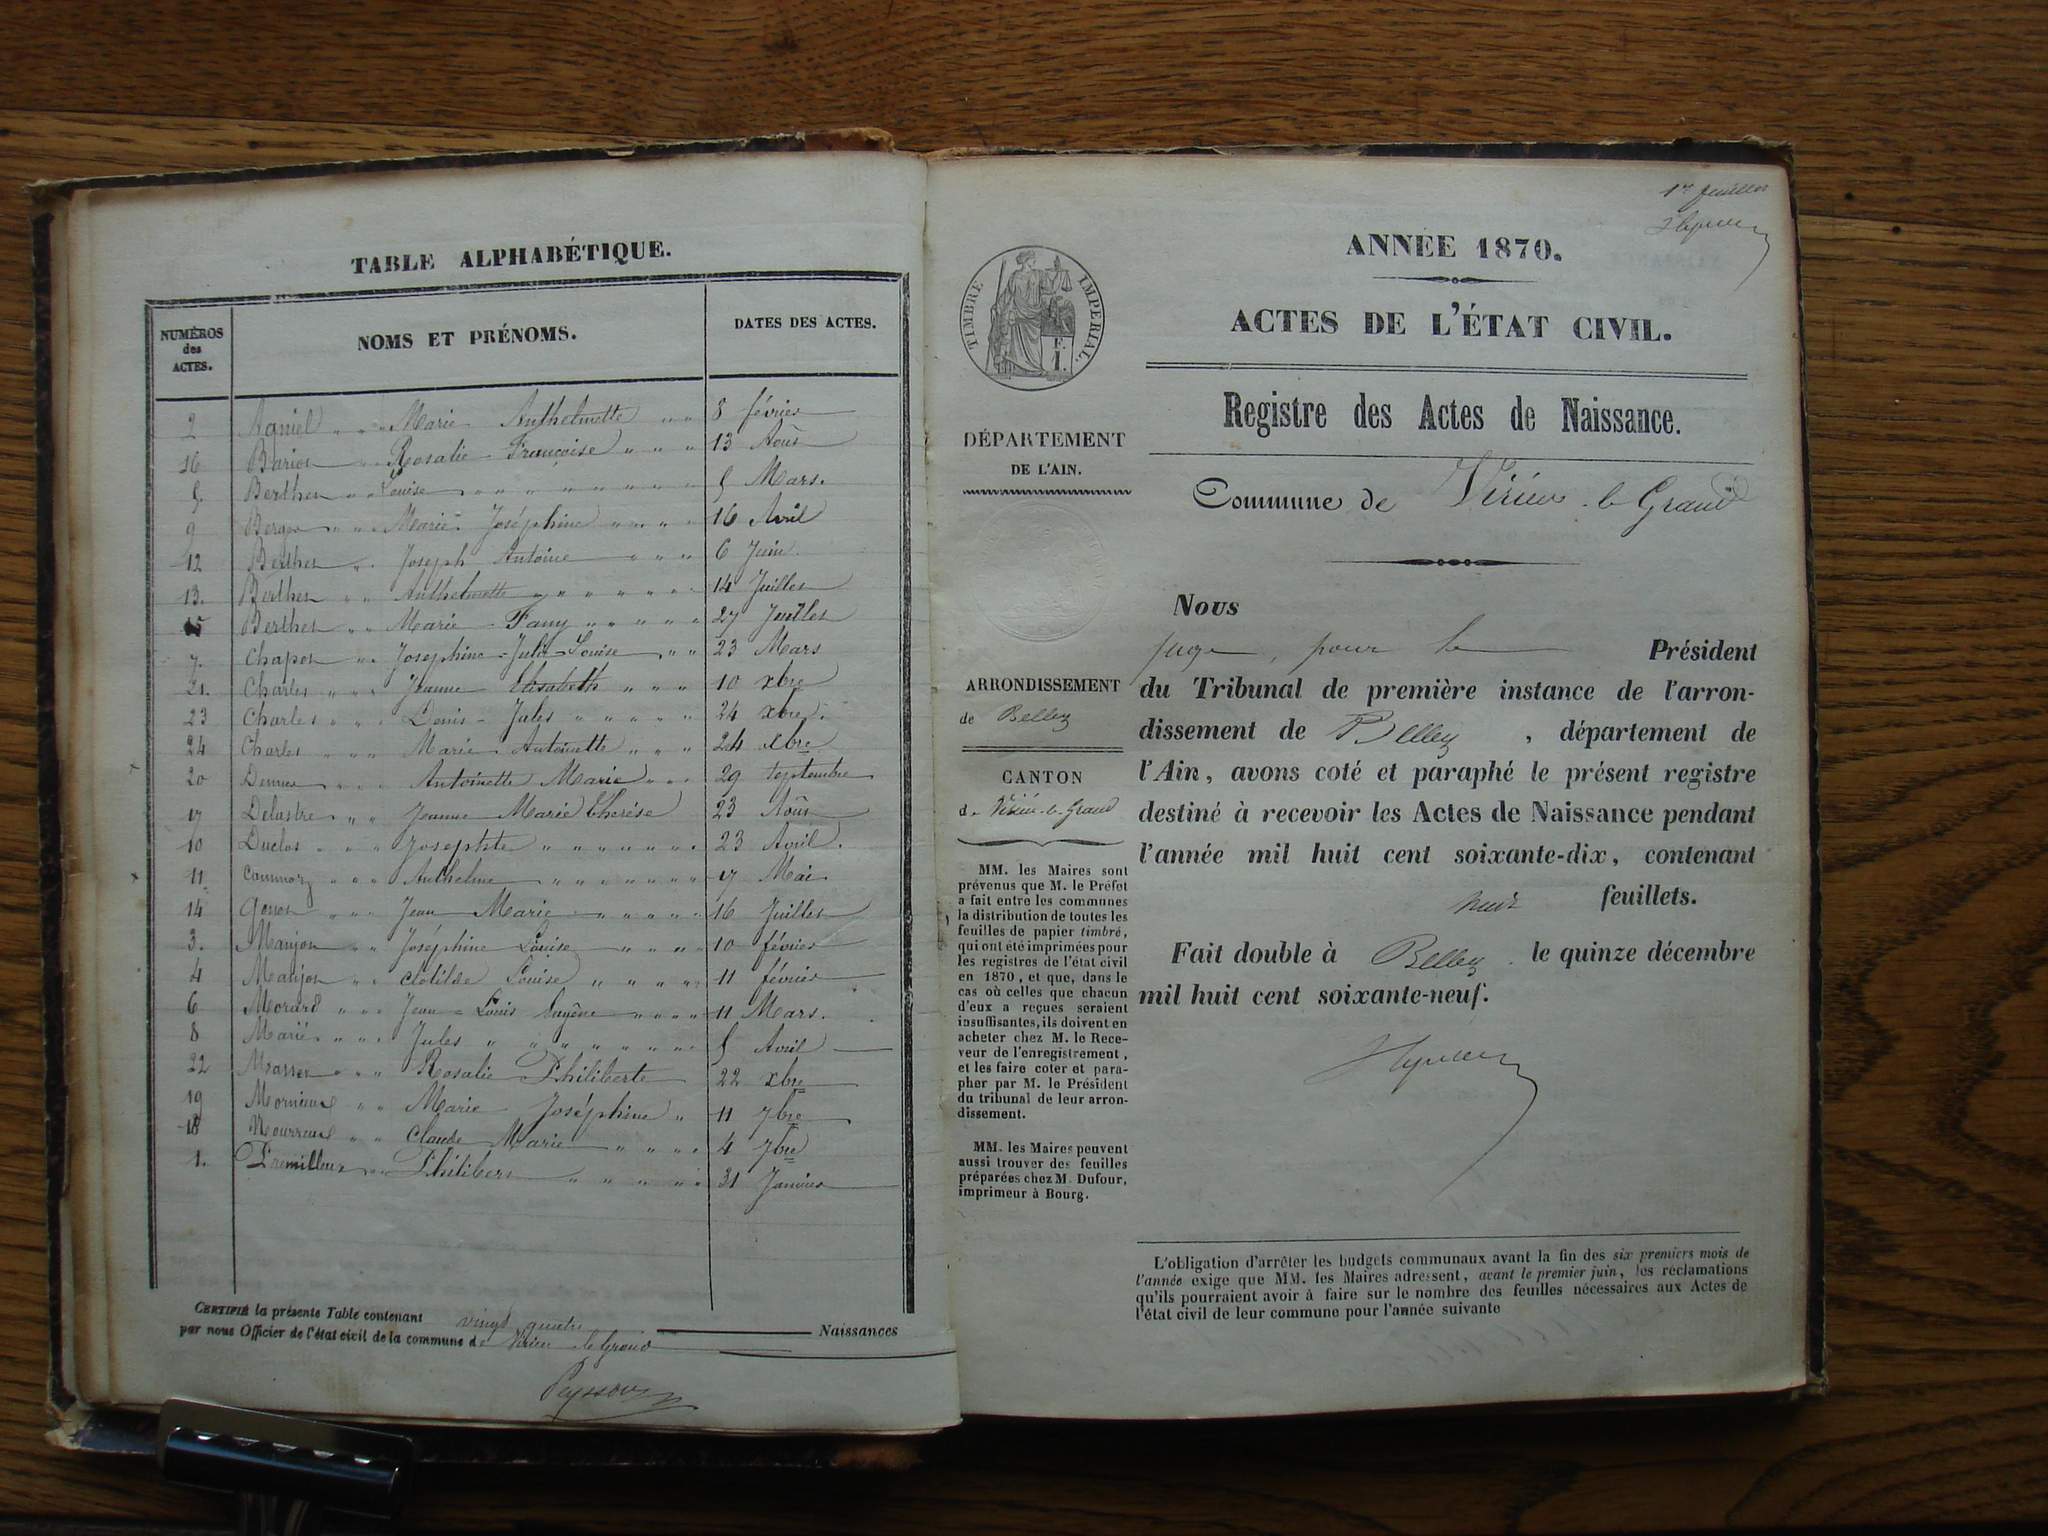 TABLE ALPHABÉTIQUE.
NUMÉROS des ACTES. NOMS ET PRÉNOMS. DATES DES ACTES.
2 Marie Anthelmette 8 février
16 Rosalie Françoise 13 Août
5. Berthet Louise 5 Mars.
9 Berger Marie Joséphine 16 Avril
12 Berthet Joseph Antoine 6 Juin
13. Berthet Anthelmette 14 Juillet
15 Berthet Marie Fany 27 Juillet
7. Chapot Josephine Julie Louise 23 Mars
21. Charlet Jeanne Elisabeth 10 xbre
23 Charlet Denis Jules 24 xbre.
24 Charlet Marie Antoinette 24 xbre
20 Antoinette Marie 29 septembre
17 Delastre Jeanne Marie thérèse 23 Août
10 Duclos Josephte 23 Avril.
11 Anthelme 17 Mai
14 Gonot Jean Marie 16 Juillet
3. Manjot Joséphine Louise 10 février
4 Manjot Clotilde Louise 11 février
6 Morard Jean Louis Eugène 11 Mars.
8 Marié Jules 5 Avril
22 Masset Rosalie Philiberte 22 xbre
19 Mornieux Marie Joséphine 11 7bre
18 Mourreux Claude Marie 4 7bre
1. Premilleux Philibert 31 Janvier
CERTIFIÉ la présente Table contenant vingt quatre Naissances
par nous Officier de l'état civil de la commune de Virieu le Grand
Peysson
1er feuillet
TIMBRE IMPERIAL.
F.
1.
DÉPARTEMENT
DE L'AIN.
ARRONDISSEMENT
de Belley
CANTON
de Virieu-le-Grand
MM. les Maires sont
prévenus que M. le Préfet
a fait entre les communes
la distribution de toutes les
feuilles de papier timbré,
qui ont été imprimées pour
les registres de l'état civil
en 1870, et que, dans le
cas où celles que chacun
d'eux a reçues seraient
insuffisantes, ils doivent en
acheter chez M. le Rece-
veur de l'enregistrement,
et les faire coter et para-
pher par M. le Président
du tribunal de leur arron-
dissement.
MM. les Maires peuvent
aussi trouver des feuilles
préparées chez M. Dufour,
imprimeur à Bourg.
ANNÉE 1870.
ACTES DE L'ÉTAT CIVIL.
Registre des Actes de Naissance.
Commune de Virieu-le-Grand
Nous
juge, pour le Président
du Tribunal de première instance de l'arron-
dissement de Belley, département de
l'Ain, avons coté et paraphé le présent registre
destiné à recevoir les Actes de Naissance pendant
l'année mil huit cent soixante-dix, contenant
huit feuillets.
Fait double à Belley le quinze décembre
mil huit cent soixante-neuf.
L'obligation d'arrêter les budgets communaux avant la fin des six premiers mois de
l'année exige que MM. les Maires adressent, avant le premier juin, les réclamations
qu'ils pourraient avoir à faire sur le nombre des feuilles nécessaires aux Actes de
l'état civil de leur commune pour l'année suivante